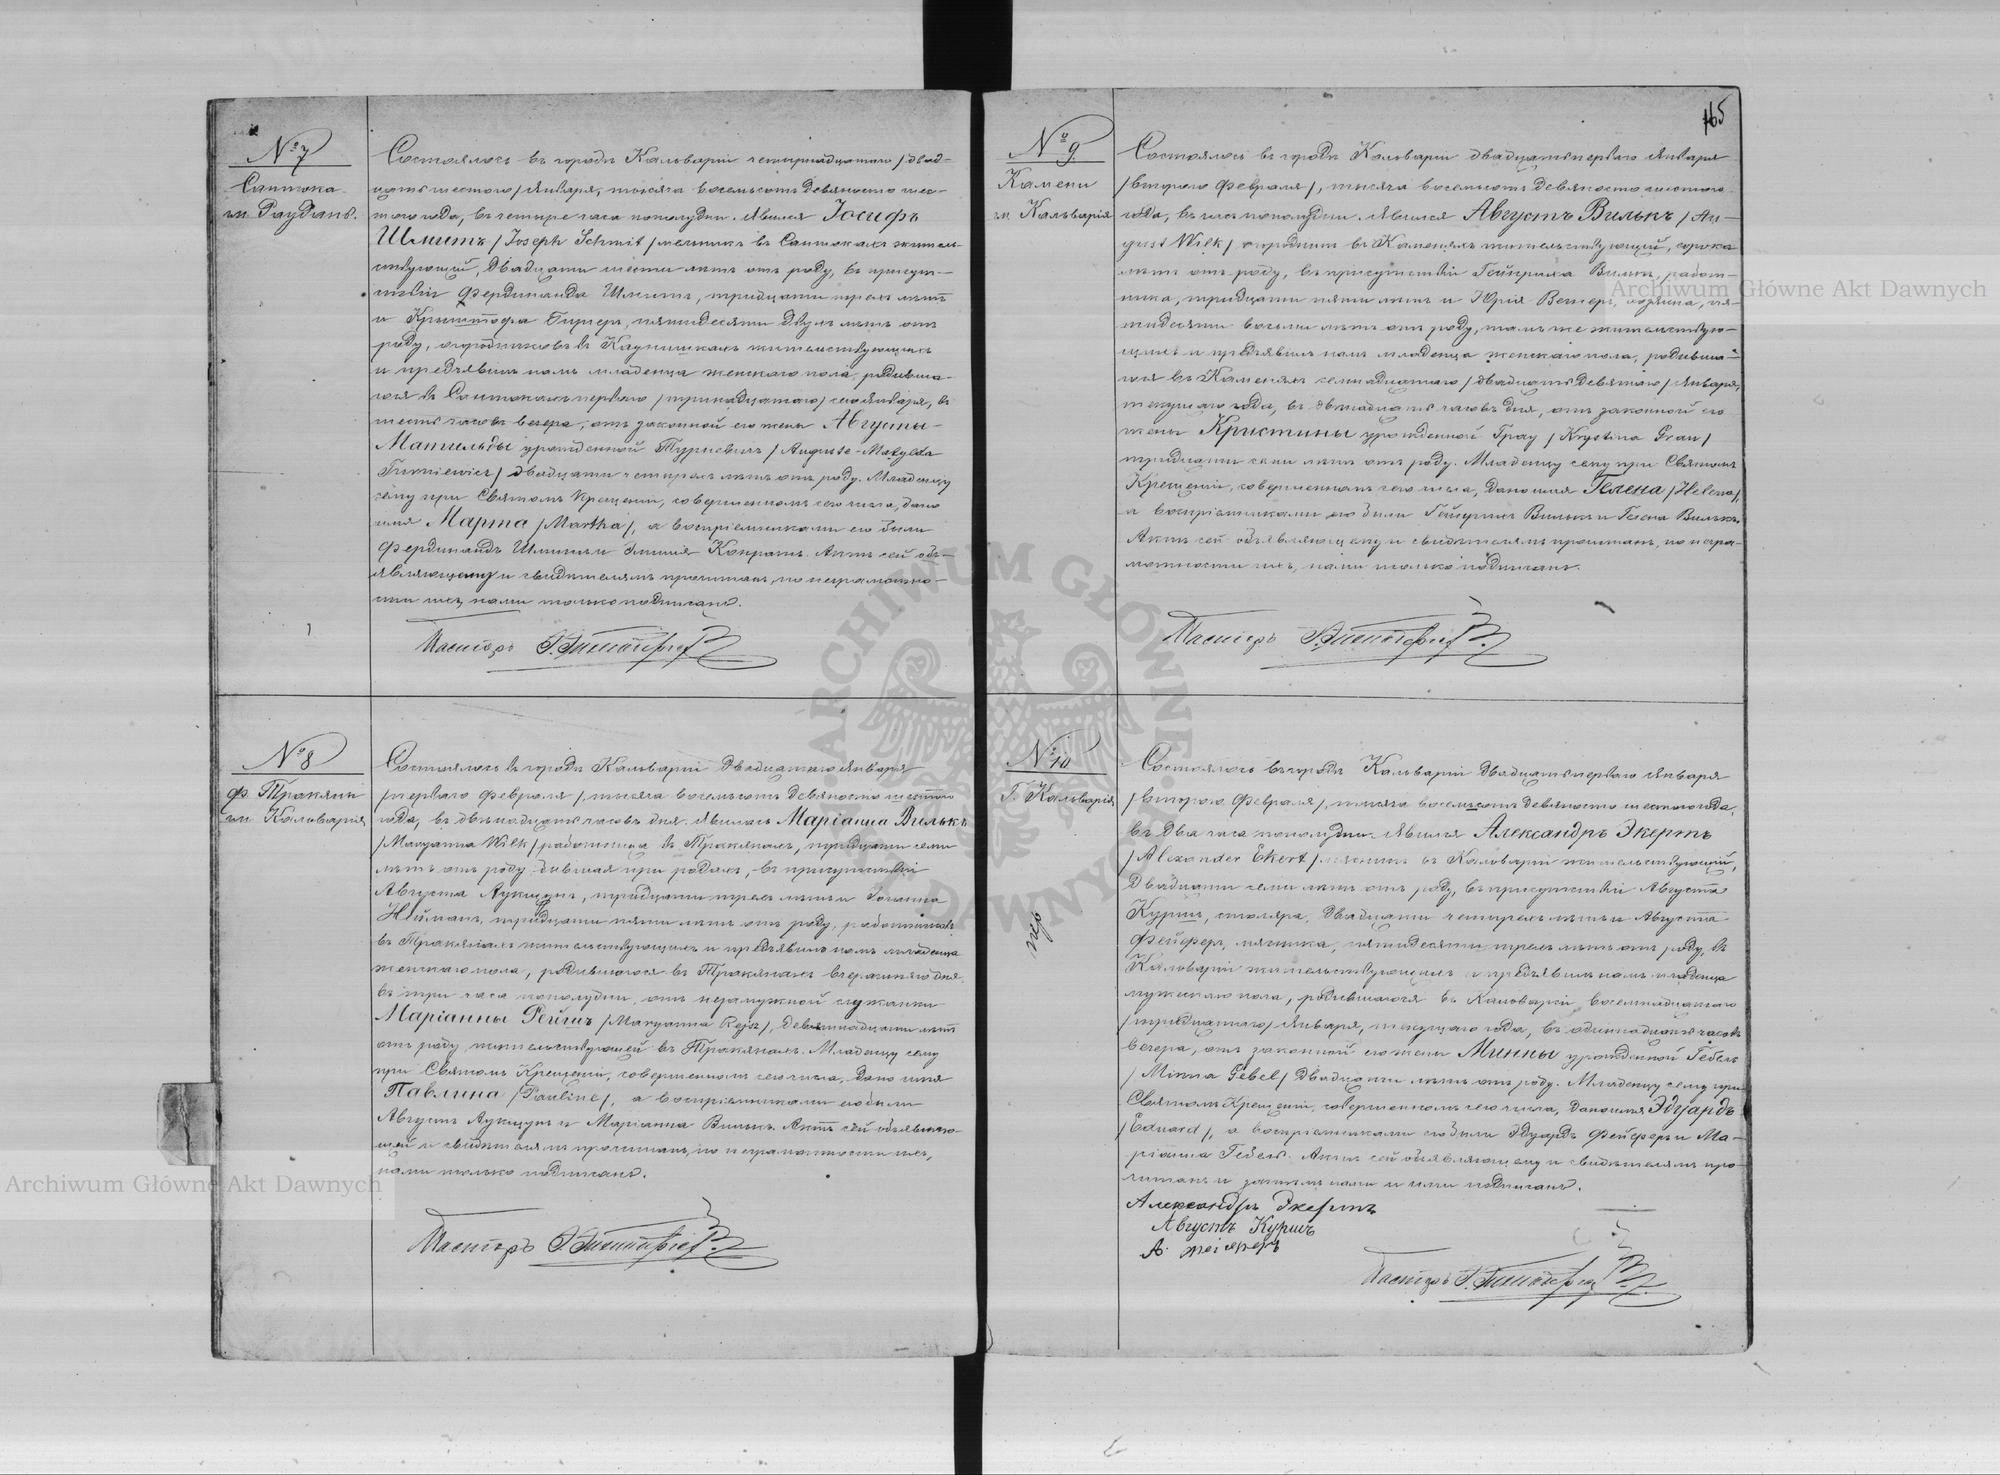 № 7
Сантока
гм. Раудань.
Состоялось въ городѣ Кальваріи четырнадцатаго /двад-
цать шестого/ Января, тысяча восемьсотъ девяносто шес-
того года, въ четыре часа пополудни. Явился Іосифъ
Шмитъ /Joseph Schmit/ мельникъ въ Сантокахъ житель-
ствующій, двадцати шести лѣтъ отъ роду, въ присут-
ствіи Фердинанда Шмитъ, тридцати трехъ лѣтъ
и Криштофа, пятидесяти двухъ лѣтъ отъ
роду, огородниковъ въ жительствующихъ
и предъявилъ намъ младенца женскаго пола, родивша-
гося въ Сантокахъ перваго /тринадцатаго/ сего Января, въ
шесть часовъ вечера, отъ законной его жены Августы-
Матильды урожденной Турневичъ /Auguste-Matylda
Turniewicz/ двадцати четырехъ лѣтъ отъ роду. Младенцу
сему при Святомъ Крещеніи, совершенномъ сего числа, дано
имя Марта /Martha/, а воспріемниками его были
Фердинандъ Шмитъ и Эмилія Конратъ. Актъ сей объ-
являющему и свидѣтелямъ прочитанъ, по неграмотно-
сти ихъ, нами только подписанъ.
Пасторъ
№ 8
ф. Тракяни
гм. Кальварія
Состоялось въ городѣ Кальваріи двадцатаго Января
/перваго Февраля/, тысяча восемьсотъ девяносто шестого
года, въ двѣнадцать часовъ дня. Явилась Маріанна Вилькъ
/Maryanna Wilk/ работница въ Тракянахъ, тридцати семи
лѣтъ отъ роду, бывшая при родахъ, въ присутствіи
Августа, тридцати трехъ лѣтъ и Іоганна
Нейманъ, тридцати пяти лѣтъ отъ роду, работниковъ
въ Тракянахъ жительствующихъ и предъявила намъ младенца
женскаго пола, родившагося въ Тракянахъ вчерашняго дня,
въ три часа пополудни, отъ незамужной служанки
Маріанны Рейшъ /Maryanna Rejsz/, девятнадцати лѣтъ
отъ роду, жительствующей въ Тракянахъ. Младенцу сему
при Святомъ Крещеніи, совершенномъ сего числа, дано имя
Павлина /Pauline/, а воспріемниками его были
Августъ и Маріанна Вилькъ. Актъ сей объявляю-
щей и свидѣтелямъ прочитанъ, по неграмотности ихъ,
нами только подписанъ.
Пасторъ
165
№ 9
Камени
гм. Кальварія
Состоялось въ городѣ Кальваріи двадцать перваго Января
/второго Февраля/, тысяча восемьсотъ девяносто шестого
года, въ часъ пополудни. Явился Августъ Вилькъ /Au-
gust Wilk/ огородникъ въ Каменяхъ жительствующій, сорока
лѣтъ отъ роду, въ присутствіи Гейнриха Вилькъ, работ-
ника, тридцати пяти лѣтъ и Юрія, хозяина, пя-
тидесяти восьми лѣтъ отъ роду, тамъ же жительствую-
щихъ и предъявилъ намъ младенца женскаго пола, родивша-
гося въ Каменяхъ семнадцатаго /двадцать девятаго/ Января,
текущаго года, въ двѣнадцать часовъ дня, отъ законной его
жены Кристины урожденной Грау /Krystina Grau/
тридцати семи лѣтъ отъ роду. Младенцу сему при Святомъ
Крещеніи, совершенномъ сего числа, дано имя Гелена /Helena/,
а воспріемниками его были Гейнрихъ Вилькъ и Гелена Вилькъ.
Актъ сей объявляющему и свидѣтелямъ прочитанъ, по негра-
мотности ихъ, нами только подписанъ.
Пасторъ
№ 10
Г. Кальварія
Состоялось въ городѣ Кальваріи двадцать перваго Января
/второго Февраля/, тысяча восемьсотъ девяносто шестого года,
въ два часа пополудни. Явился Александръ Экертъ
/Alexander Ekert/ въ Кальваріи жительствующій,
двадцати семи лѣтъ отъ роду, въ присутствіи Августа
Куршъ, столяра, двадцати четырехъ лѣтъ и Августа
Фейферъ, пятидесяти трехъ лѣтъ отъ роду, въ
Кальваріи жительствующихъ и предъявилъ намъ младенца
мужескаго пола, родившагося въ Кальваріи, восемнадцатаго
/тридцатаго/ Января, текущаго года, въ одиннадцать часовъ
вечера, отъ законной его жены Минны урожденной Гебель
/Minna Gebel/ двадцати лѣтъ отъ роду. Младенцу сему при
Святомъ Крещеніи, совершенномъ сего числа, дано имя Эдуардъ
/Eduard/, а воспріемниками его были Эдуардъ Фейферъ и Ма-
ріанна Гебель. Актъ сей объявляющему и свидѣтелямъ про-
читанъ и затѣмъ нами и ими подписанъ.
Александръ Экертъ
Августъ Куршъ
А.
Пасторъ
Archiwum Główne Akt Dawnych
Archiwum Główne Akt Dawnych
ARCHIWUM GŁÓWNE AKT DAWNYCH